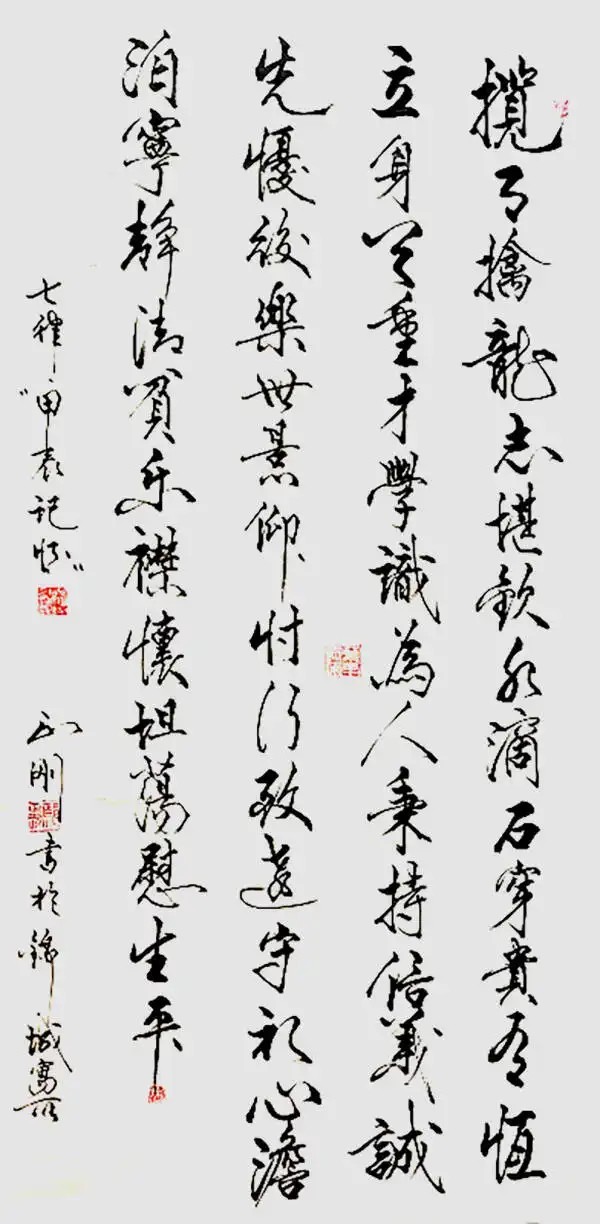 攬月擒龍志堪欽水滴石穿貴有恆
立身重才學識為人秉持信義誠
先憂後樂世景仰忖行致遠守初心澹
泊寧靜清貧樂襟懷坦蕩慰生平
七律“申表記怀”
刚書於錦城寓所